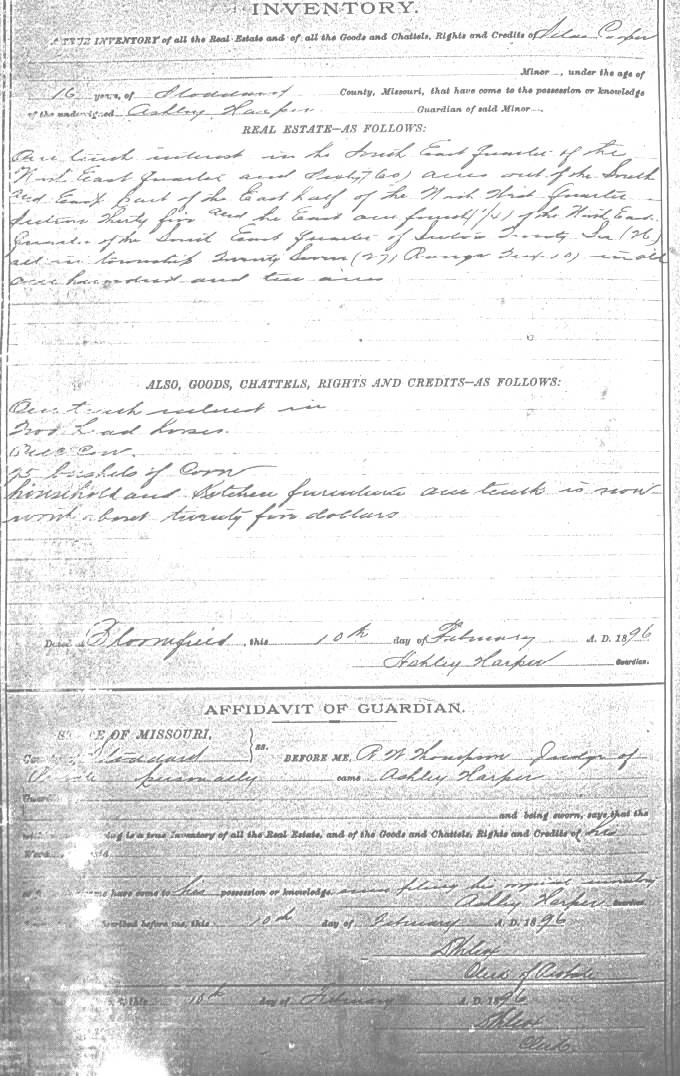 INVENTORY.
A TRUE INVENTORY of all the Real Estate and of all the Goods and Chattels, Rights and Credits of Cooper
Minor , under the age of
16 years, of Stoddard County, Missouri, that have come to the possession or knowledge
of the undersigned Ashley Harper Guardian of said Minor .
REAL ESTATE—AS FOLLOWS:
One tenth interest in the South East quarter of the
North East quarter and Sixty (60) acres out of the South
and East part of the East half of the North West quarter
Section Thirty five and the East one fourth (1/4) of the North East
Quarter of the South East quarter of Section Twenty Six (26)
all in township Twenty Seven (27) Range Ten (10) in all
one hundred and ten acres
ALSO, GOODS, CHATTELS, RIGHTS AND CREDITS—AS FOLLOWS:
One tenth interest in
Two head horses
One Cow
bushels of Corn
household and Kitchen furniture one tenth is now
worth about twenty five dollars
Dated at Bloomfield this 10th day of February A. D. 1896
Ashley Harper Guardian.
AFFIDAVIT OF GUARDIAN.
STATE OF MISSOURI,
Stoddard } ss. BEFORE ME, R W Thompson Judge of
Probate personally came Ashley Harper
Guardian
and being sworn, says that the
is a true Inventory of all the Real Estate, and of the Goods and Chattels, Rights and Credits of his
Ward
have come to his possession or knowledge since filing his original inventory
Ashley Harper Guardian
subscribed before me, this 10th day of February A. D. 1896
Clerk of Probate
this 10th day of February A. D. 1896
Clerk